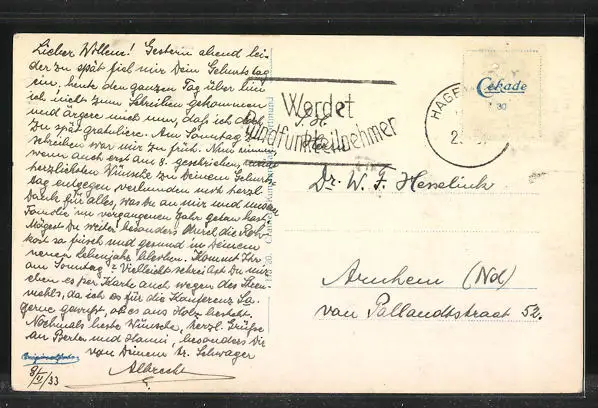 Lieber Wollem! Gestern abend lei-
der zu spät fiel mir Dein Geburtstag
ein, heute den ganzen Tag über bin
ich nicht zum Schreiben gekommen
und ärgere mich nun, daß ich doch
zu spät gratuliere. Am Sonntag zu
schreiben war mir zu früh. Nun nimm
wenn auch erst am 8. geschrieben, meine
herzlichsten Wünsche zu Deinem Geburts-
tag entgegen verbunden mit herzl.
Dank für alles, was Du an mir und meiner
Familie im vergangenen Jahr getan hast.
Mögest Du weiter besonders durch die Roh-
kost so frisch und gesund in Deinem
neuen Lebensjahr bleiben. Kommt Ihr
am Sonntag? Vielleicht schreibst Du mir
eben es per Karte auch wegen des
da ich es für die Konferenz
gerne
Nochmals beste Wünsche, herzl. Grüße
an Bertes und Hanni, besonders Dir
von Deinem tr. Schwager
Albrecht
8/II/33
Werdet
Rundfunkteilnehmer
HAGEN
Cekade
30
Dr. W. F. Hesselink
Arnhem (Nd)
van Pallandtstraat 52.